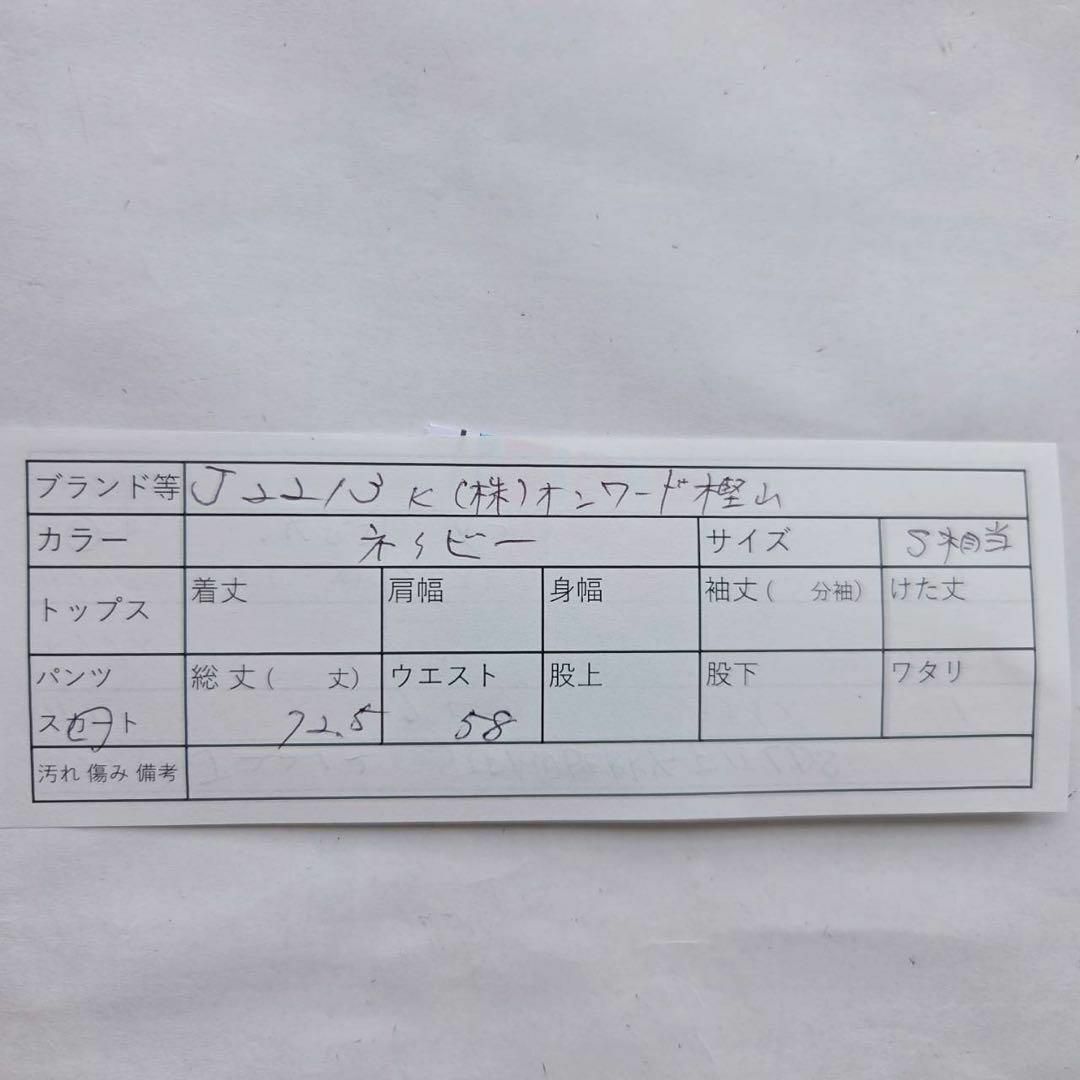 ブランド等 J2213 K (株)オンワード樫山
カラー ネイビー サイズ S相当
トップス 着丈 肩幅 身幅 袖丈( 分袖) けた丈
パンツ 総丈( 丈) ウエスト 股上 股下 ワタリ
スカート 72.5 58
汚れ 傷み 備考